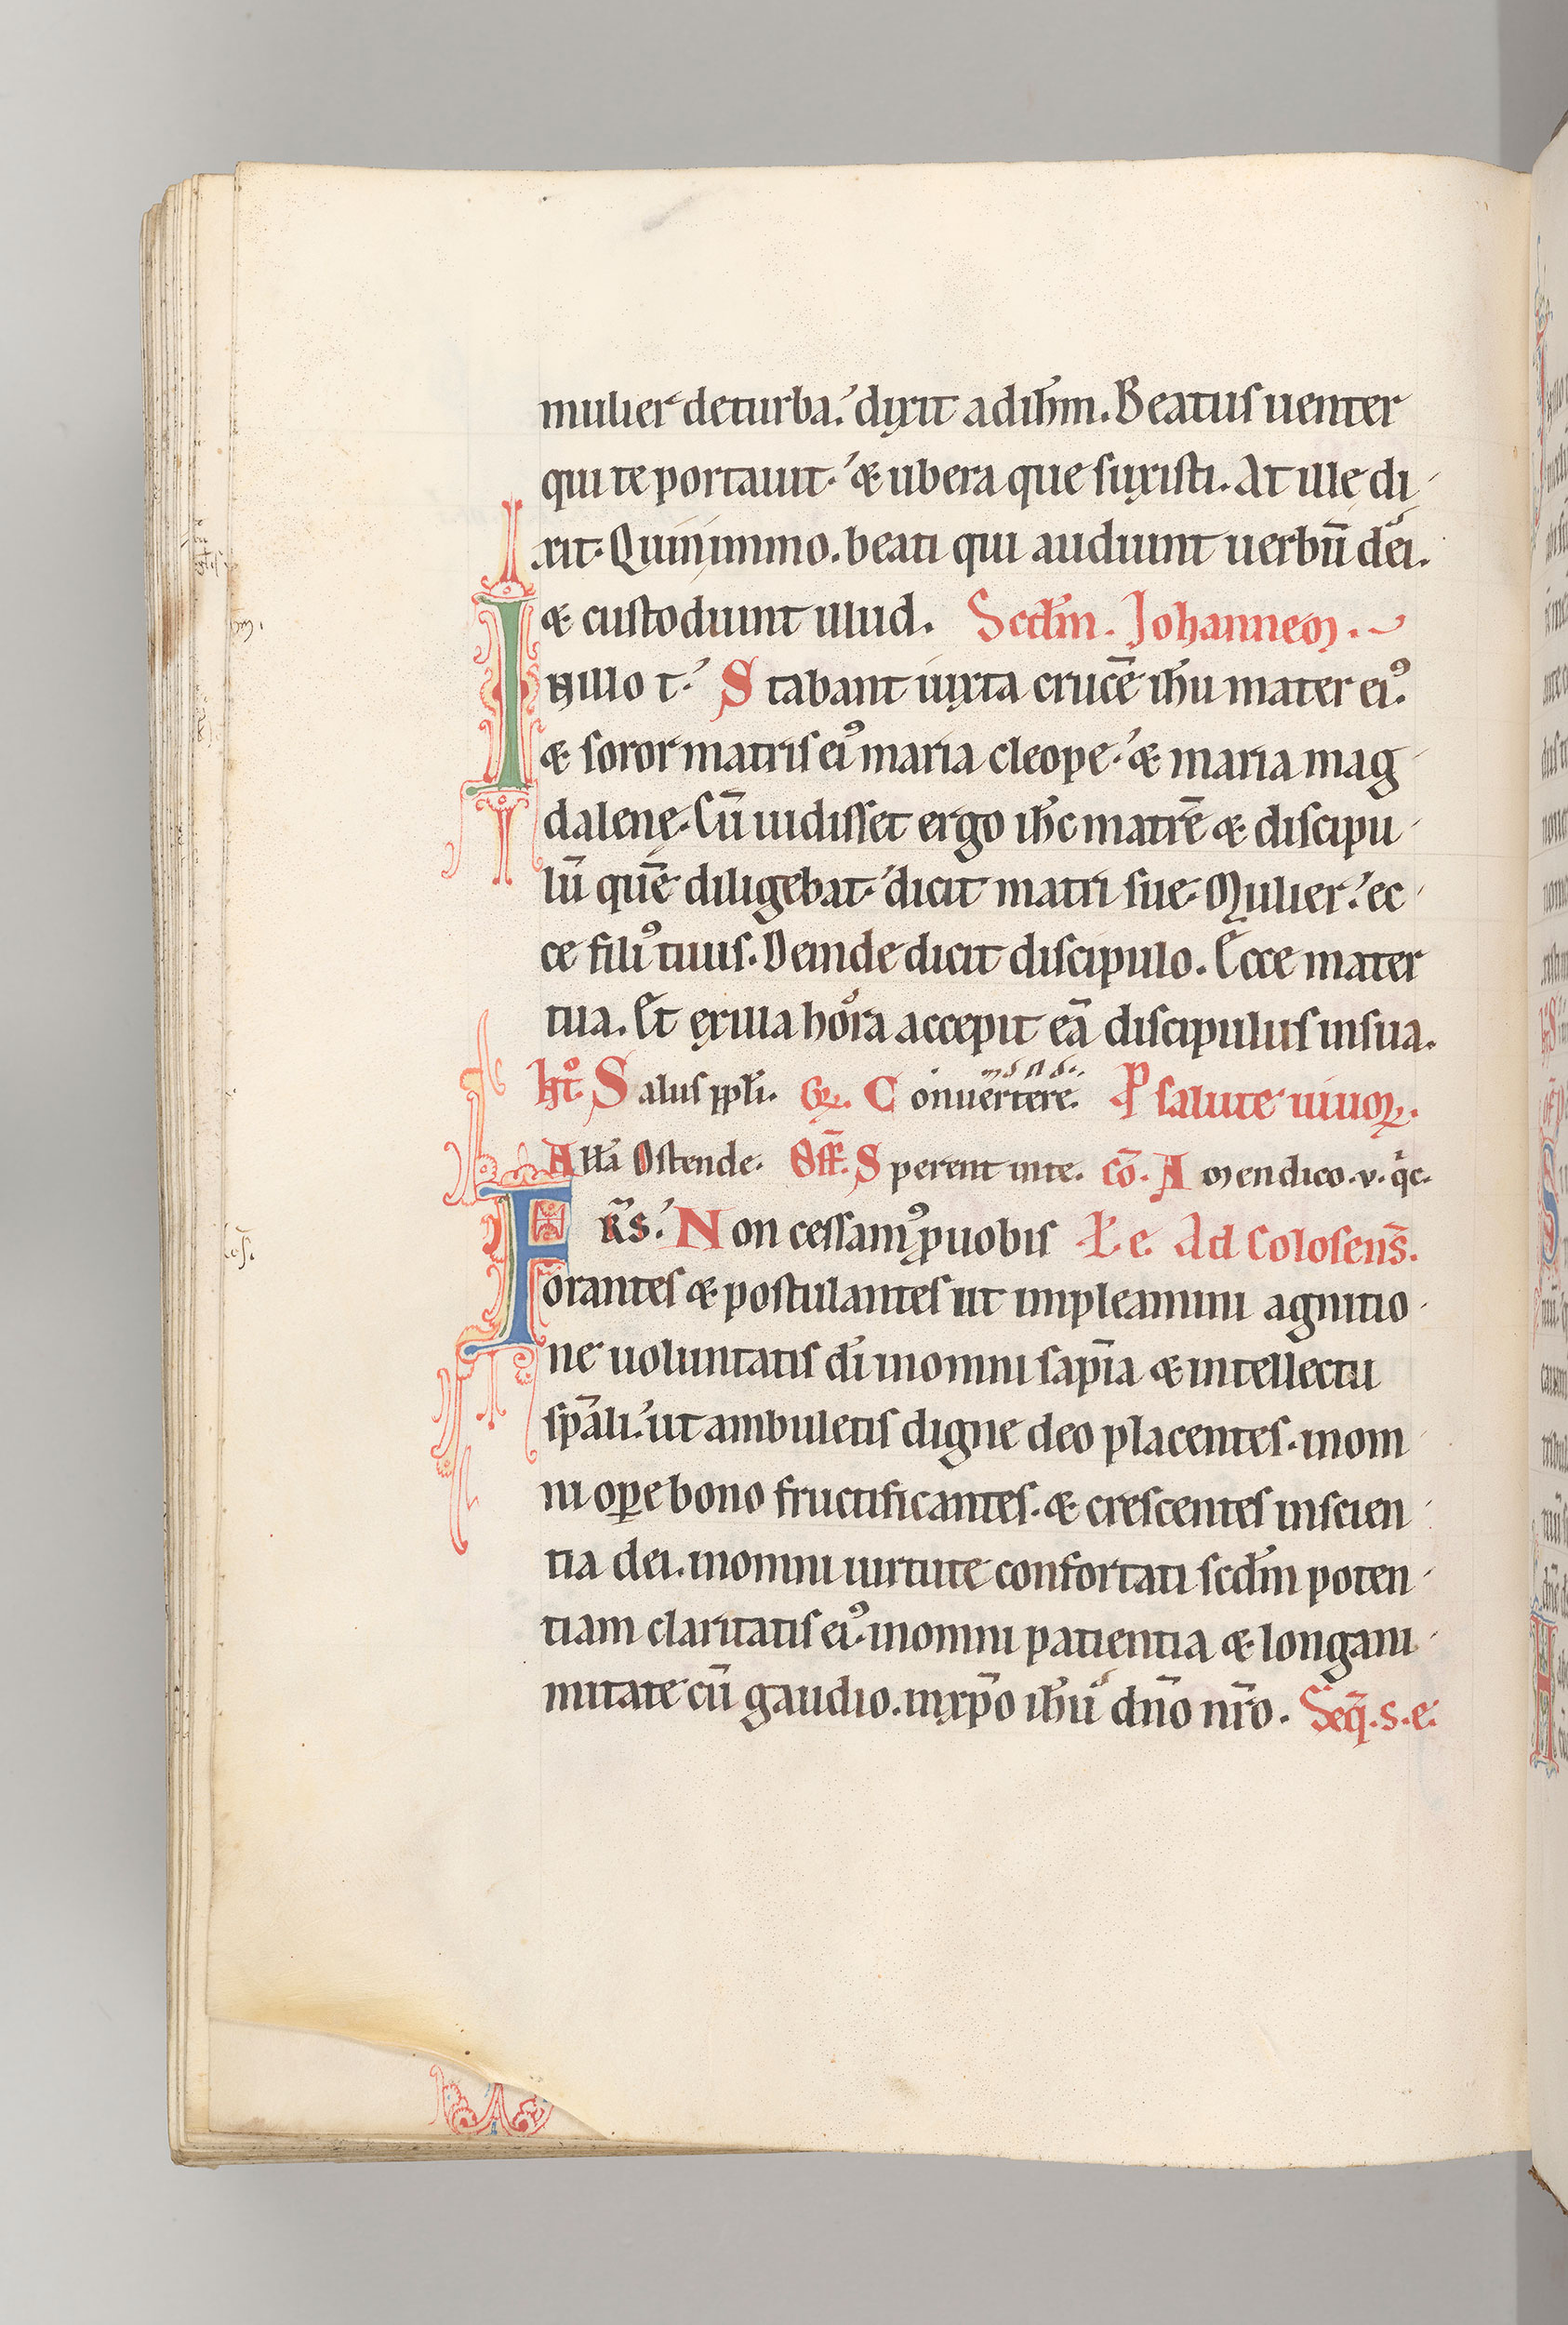 mulier deturba. dixit adih̄m. Beatus uenter
qui te portauit. & ubera que suxisti. At ille di
xit. Quinimmo. beati qui audiunt uerbū dei.
& custodiunt illud. Scdm̄. Johannem.
Inillo t. Stabant iuxta crucē ih̄u mater eiꝰ.
& soror matris eiꝰ maria cleope. & maria mag
dalenę. Cū uidisset ergo ih̄c matrē & discipu
lū quē diligebat. dicit matri sue. Mulier. ec
ce filiꝰ tuus. Deinde dicit discipulo. Ecce mater
tua. Et exilla hora accepit eā discipulus insua.
Int̊. Salus ppl̄i. Gͬ. Conuertere. P salute uiuoꝝ.
All̄a Ostende. Off̄. Sperent inte. Cō. Amen dico. v. qͥc.
FR̄S. Non cessamꝰ ꝓuobis Łe Ad Colosens̄.
orantes & postulantes ut impleamini agnitio
ne uoluntatis dī inomni sapīa & intellectu
spāli. ut ambuletis digne deo placentes. inom
ni oꝑe bono fructificantes. & crescentes inscien
tia dei. inomni uirtute confortati scdm̄ poten
tiam claritatis eiꝰ. inomni patientia & longani
mitate cū gaudio. inxp̄o ih̄u dn̄o nr̄o. Seq̄. s. e.